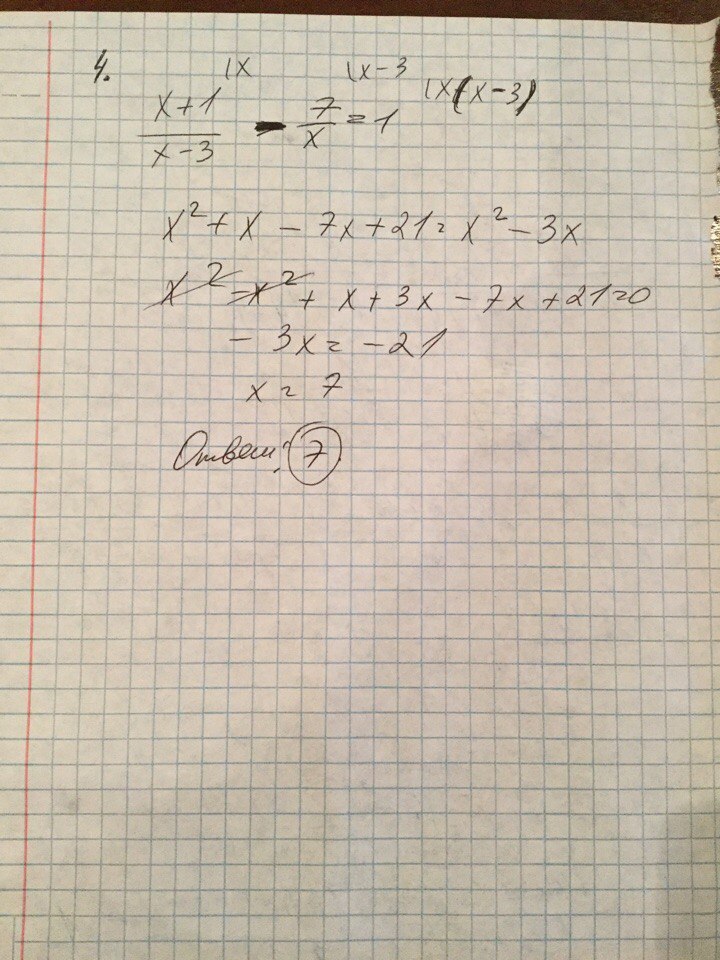 4. \x \x-3 \x(x-3)
x+1/x-3 - 7/x = 1
x² + x - 7x + 21 = x² - 3x
x² - x² + x + 3x - 7x + 21 = 0
- 3x = -21
x = 7
Ответ: 7